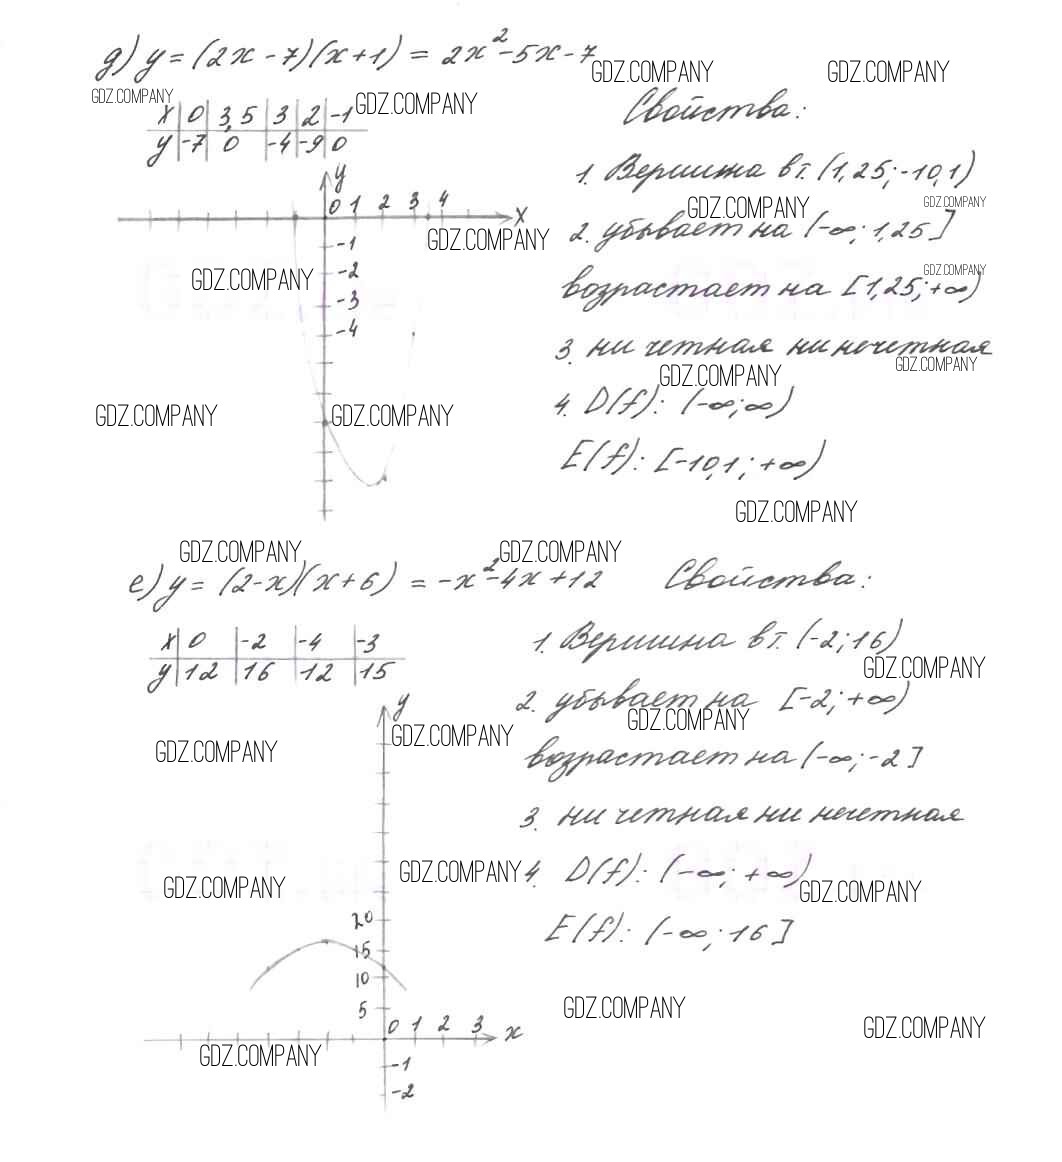 д) y = (2x - 7)(x + 1) = 2x² - 5x - 7
GDZ.COMPANY GDZ.COMPANY
GDZ.COMPANY GDZ.COMPANY
x | 0 | 3,5 | 3 | 2 | -1
y | -7 | 0 | -4 | -9 | 0
Свойства:
1. Вершина в т. (1,25; -10,1)
GDZ.COMPANY GDZ.COMPANY
2. убывает на (-∞; 1,25]
GDZ.COMPANY
GDZ.COMPANY
возрастает на [1,25; +∞)
3. ни четная ни нечетная
GDZ.COMPANY
GDZ.COMPANY
4. D(f): (-∞; ∞)
E(f): [-10,1; +∞)
y
0 1 2 3 4
x
-1
GDZ.COMPANY
-2
-3
-4
GDZ.COMPANY GDZ.COMPANY
GDZ.COMPANY
GDZ.COMPANY GDZ.COMPANY
е) y = (2-x)(x+6) = -x² - 4x + 12
x | 0 | -2 | -4 | -3
y | 12 | 16 | 12 | 15
Свойства:
1. Вершина в т. (-2; 16)
GDZ.COMPANY
2. убывает на [-2; +∞)
GDZ.COMPANY
возрастает на (-∞; -2]
3. ни четная ни нечетная
4. D(f): (-∞; +∞)
GDZ.COMPANY
E(f): (-∞; 16]
y
GDZ.COMPANY
GDZ.COMPANY
GDZ.COMPANY
GDZ.COMPANY
20
15
10
5
0 1 2 3 x
-1
-2
GDZ.COMPANY
GDZ.COMPANY
GDZ.COMPANY